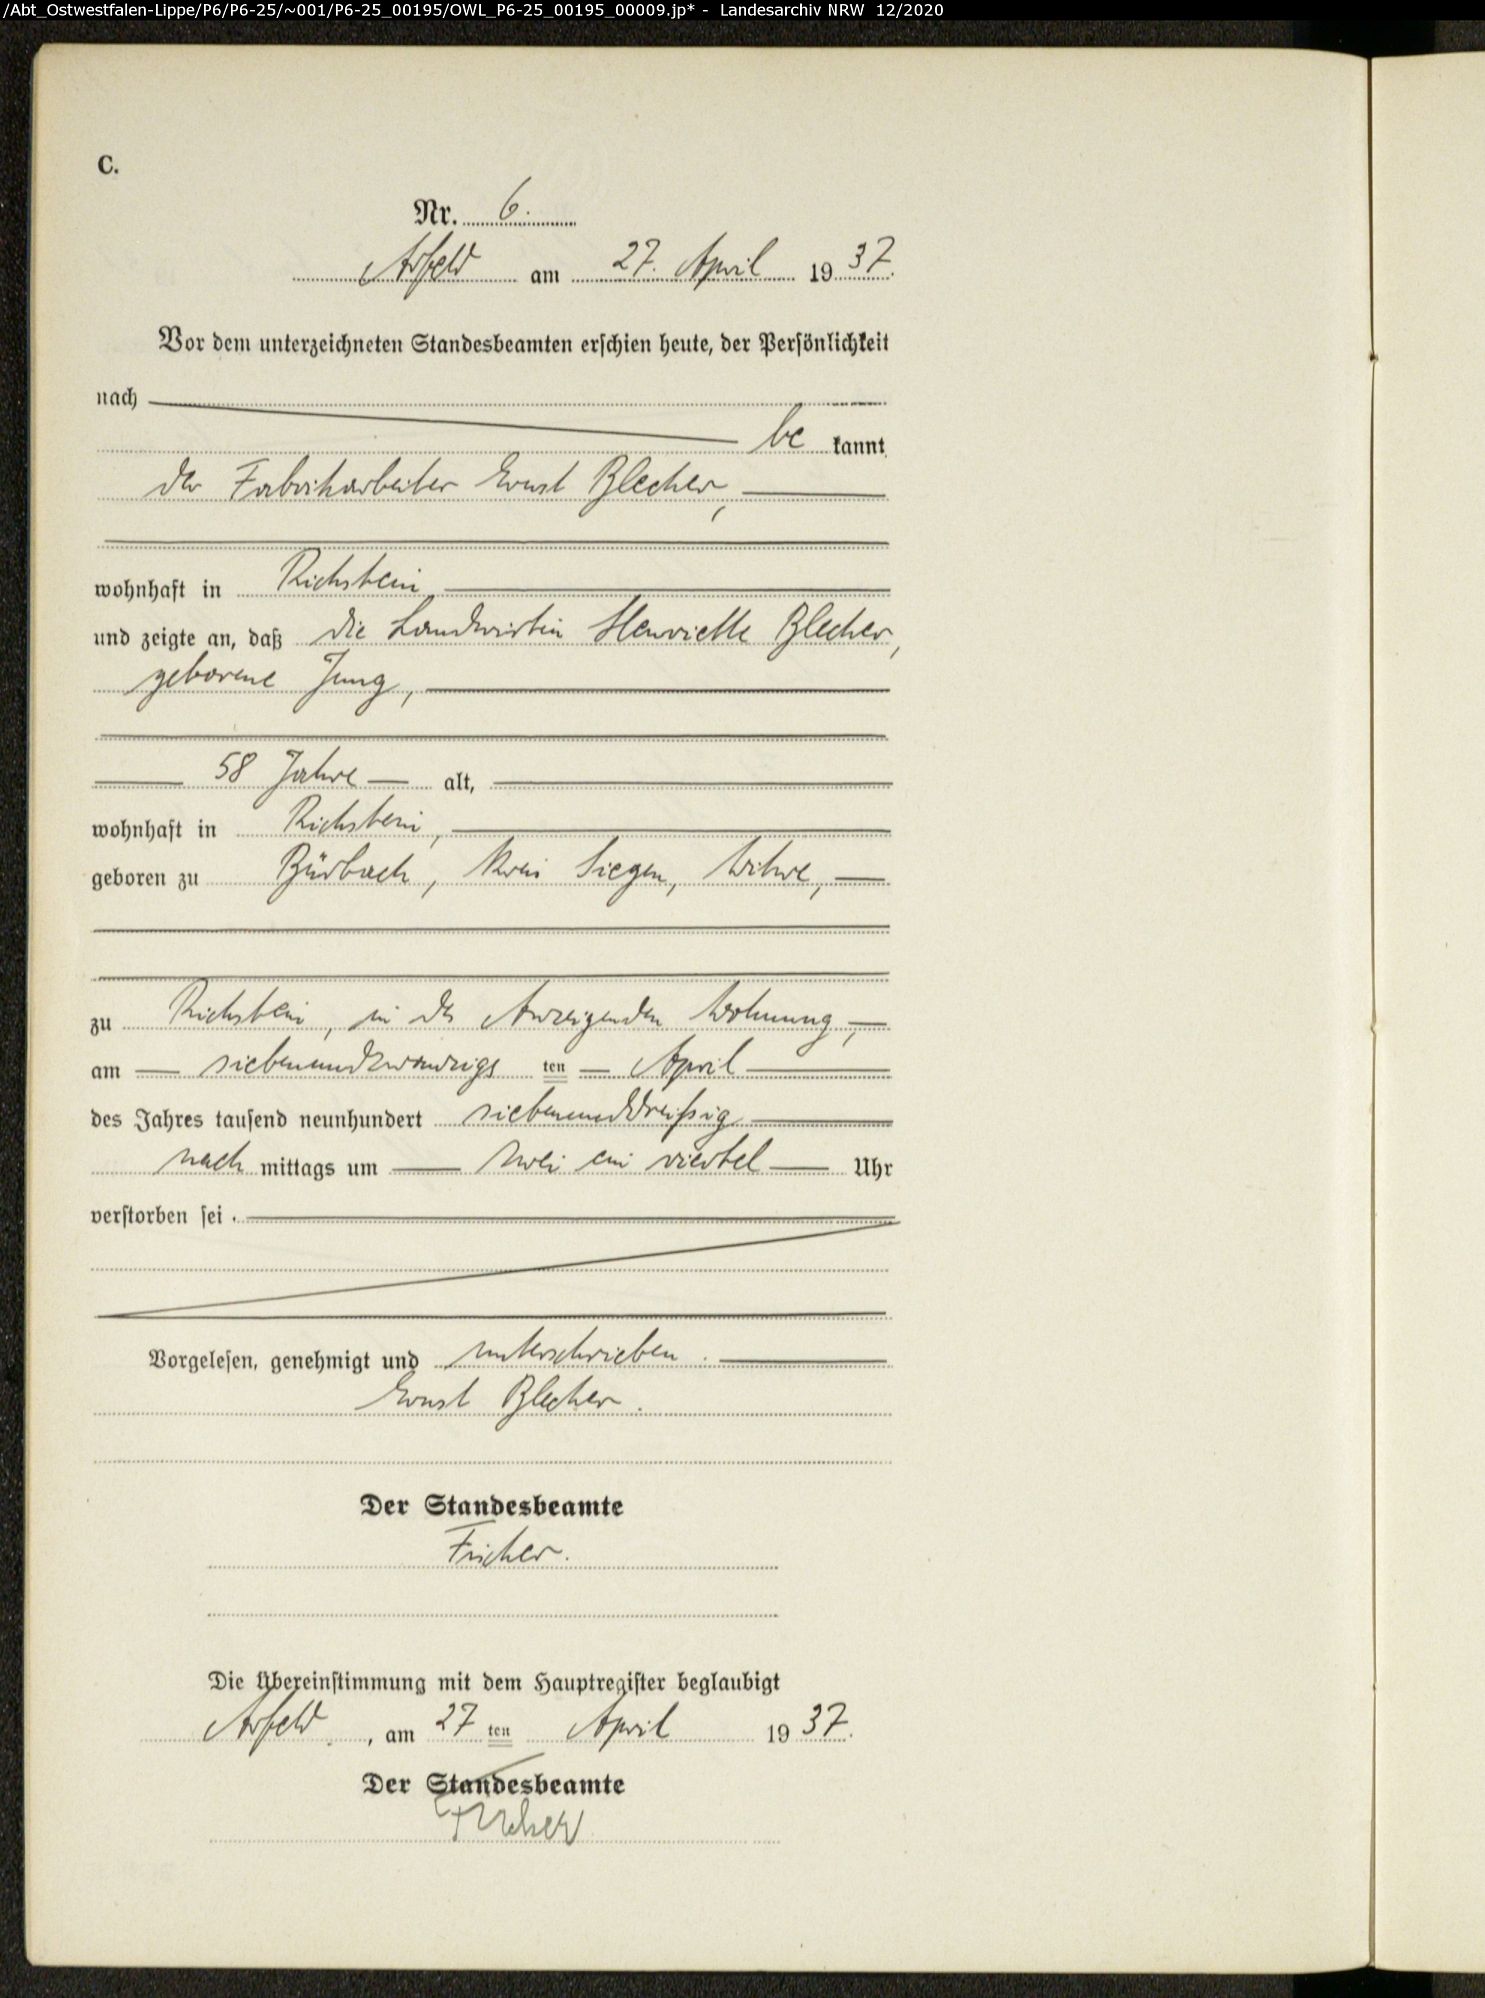 /Abt_Ostwestfalen-Lippe/P6/P6-25/~001/P6-25_00195/OWL_P6-25_00195_00009.jp* - Landesarchiv NRW 12/2020
C.
Nr. 6.
Arfeld am 27. April 1937.
Vor dem unterzeichneten Standesbeamten erschien heute, der Persönlichkeit
nach
bekannt
der Fabrikarbeiter Ernst Blecher,
wohnhaft in Richstein
und zeigte an, daß die Landwirtin Henriette Blecher,
geborene Jung,
58 Jahre alt,
wohnhaft in Richstein,
geboren zu Bürbach, Kreis Siegen, Witwe,
zu Richstein, in des Anzeigenden Wohnung,
am siebenundzwanzigsten April
des Jahres tausend neunhundert siebenunddreißig
nach mittags um zwei ein viertel Uhr
verstorben sei.
Vorgelesen, genehmigt und unterschrieben.
Ernst Blecher.
Der Standesbeamte
Fischer.
Die Übereinstimmung mit dem Hauptregister beglaubigt
Arfeld, am 27ten April 1937.
Der Standesbeamte
Fischer